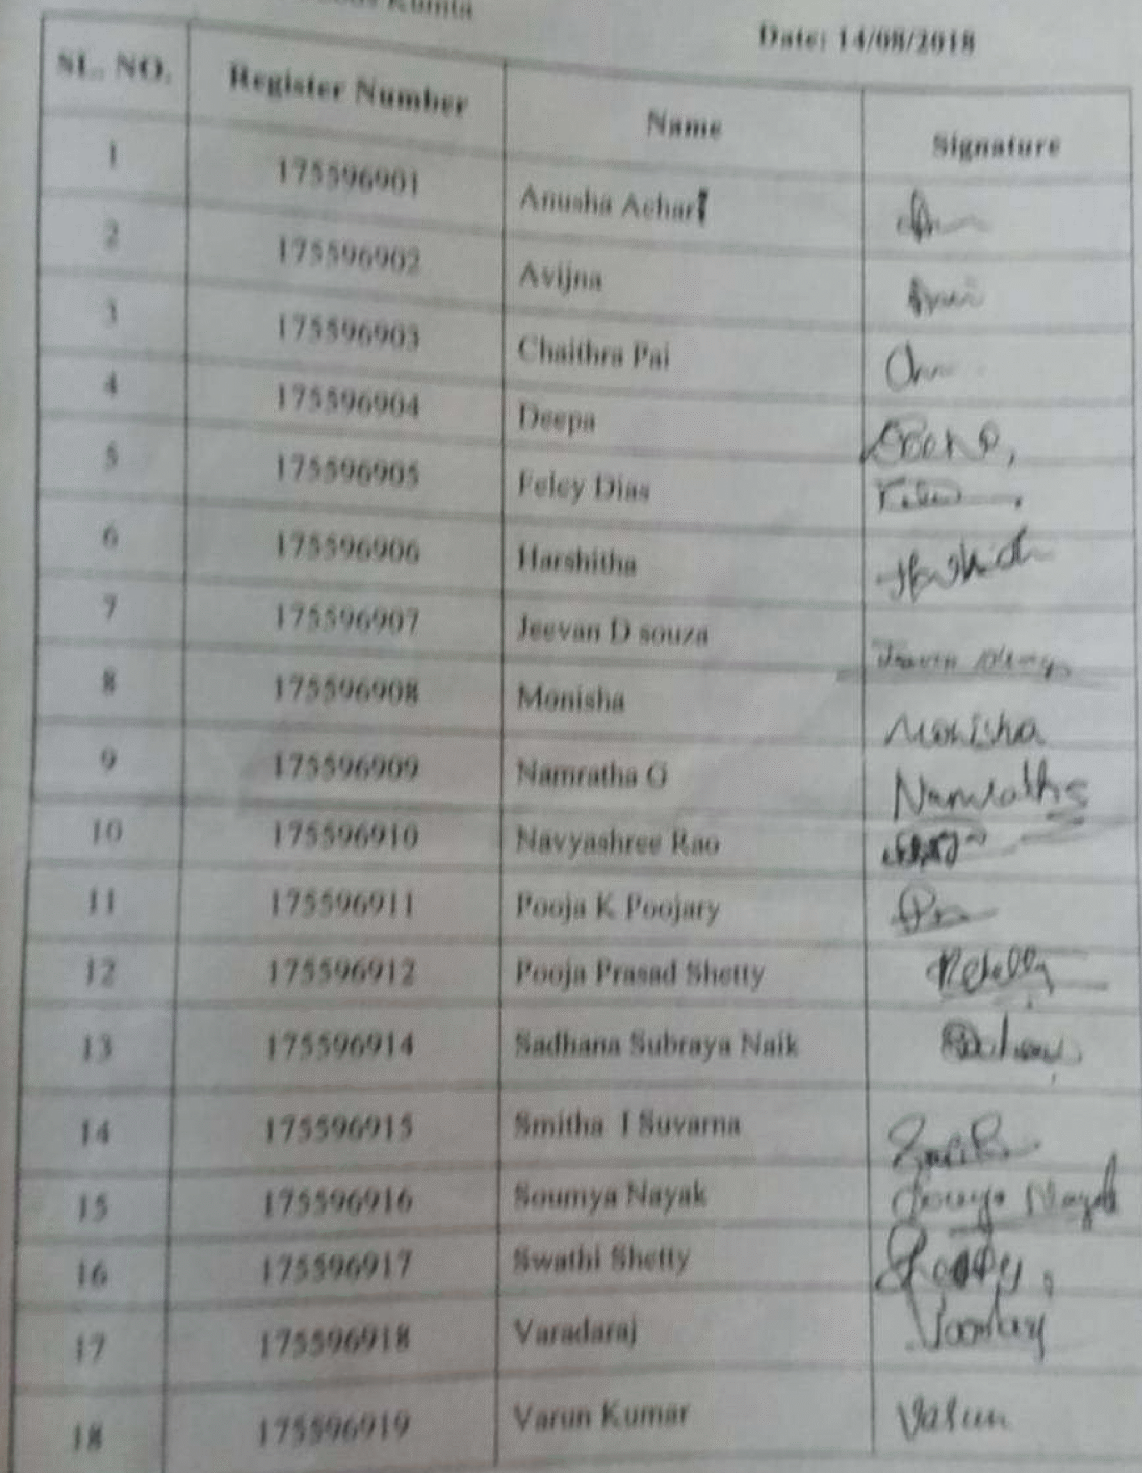 Date: 14/08/2018
SL. NO. Register Number Name Signature
1 175596901 Anusha Achari
2 175596902 Avijna
3 175596903 Chaithra Pai
4 175596904 Deepa
5 175596905 Feley Dias
6 175596906 Harshitha
7 175596907 Jeevan D souza
8 175596908 Monisha Monisha
9 175596909 Namratha G Namratha
10 175596910 Navyashree Rao
11 175596911 Pooja K Poojary
12 175596912 Pooja Prasad Shetty
13 175596914 Sadhana Subraya Naik
14 175596915 Smitha I Suvarna
15 175596916 Soumya Nayak Soumya Nayak
16 175596917 Swathi Shetty
17 175596918 Varadaraj
18 175596919 Varun Kumar Varun